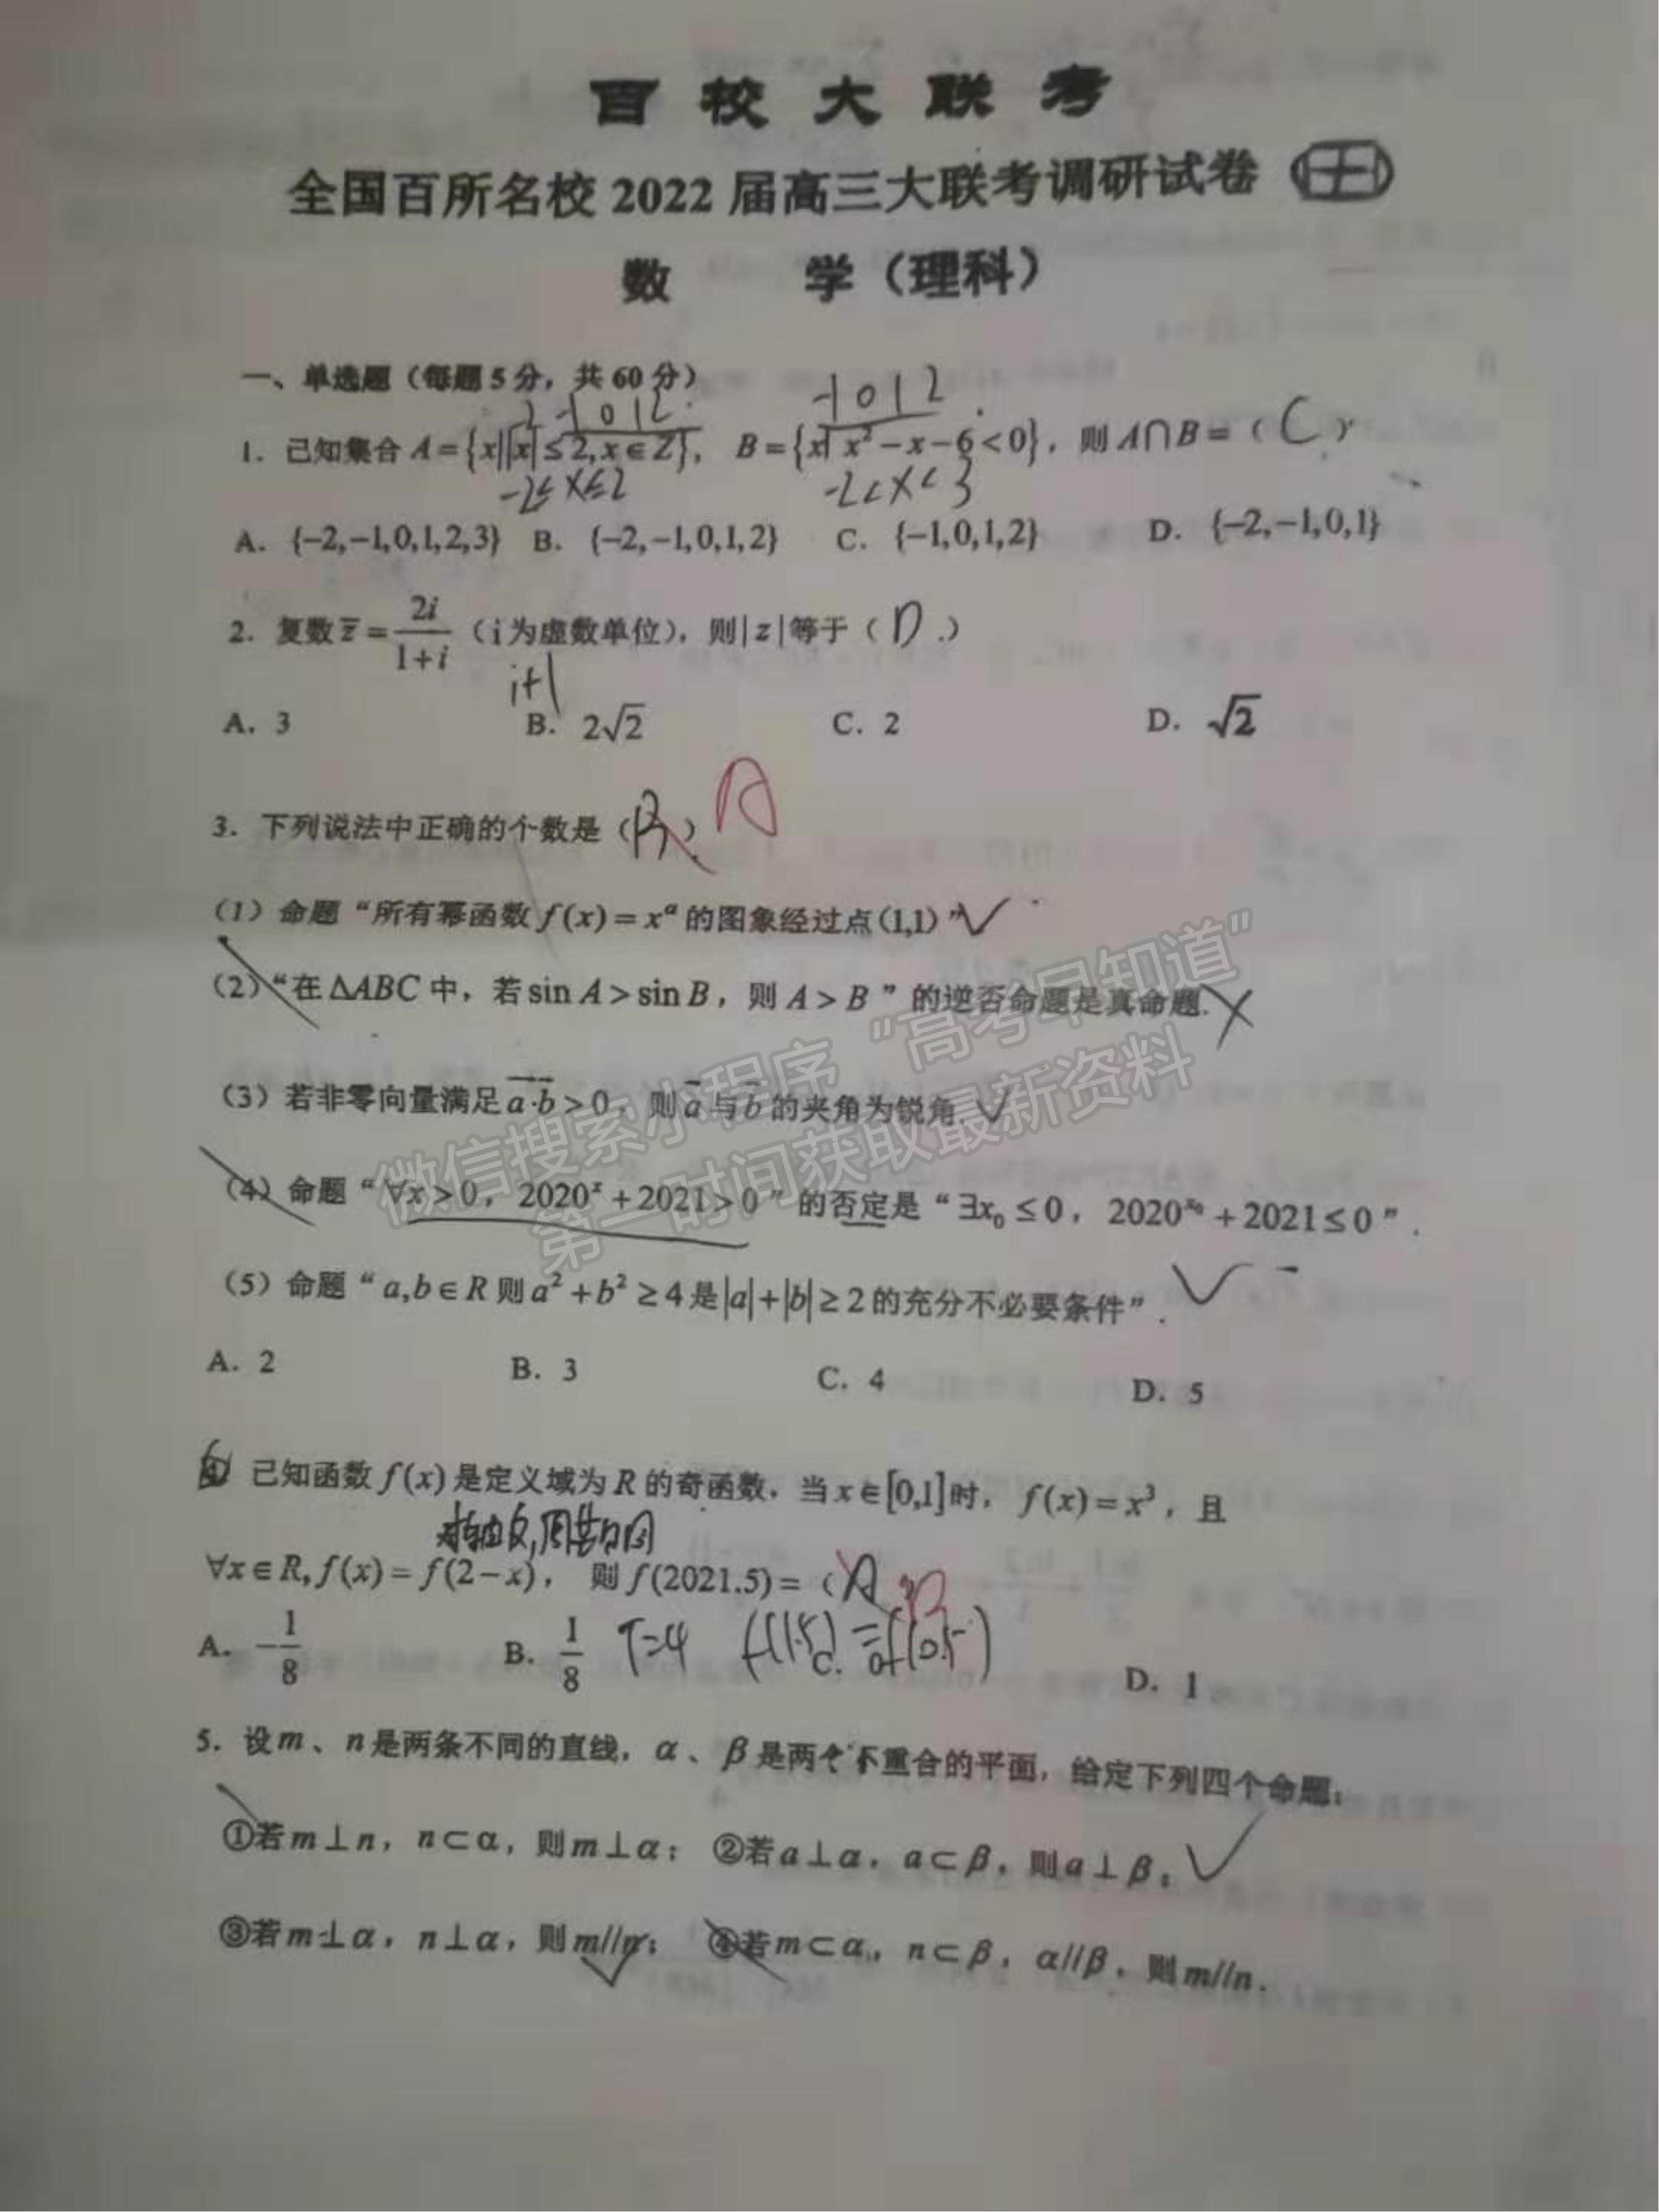 百校大联考
全国百所名校 2022 届高三大联考调研试卷
数 学（理科）
一、单选题（每题 5 分，共 60 分）
-1 0 1 2
-1 0 1 2
1. 已知集合 A={x||x|≤2,x∈Z}，B={x|x²-x-6<0}，则 A∩B=（ C ）
-2≤x≤2 -2<x<3
A. {-2,-1,0,1,2,3} B. {-2,-1,0,1,2} C. {-1,0,1,2} D. {-2,-1,0,1}
2. 复数 z̄=2i/(1+i)（i 为虚数单位），则|z|等于（ D ）
i+1
A. 3 B. 2√2 C. 2 D. √2
3. 下列说法中正确的个数是（ B ） A
（1）命题“所有幂函数 f(x)=xᵅ 的图象经过点(1,1)” ✓
（2）“在 ΔABC 中，若 sin A>sin B，则 A>B”的逆否命题是真命题. ×
（3）若非零向量满足 a·b>0，则 a 与 b 的夹角为锐角. ✓
（4）命题“∀x>0，2020ˣ+2021>0”的否定是“∃x₀≤0，2020ˣ⁰+2021≤0”.
（5）命题“a,b∈R 则 a²+b²≥4 是|a|+|b|≥2 的充分不必要条件”. ✓
A. 2 B. 3 C. 4 D. 5
4. 已知函数 f(x) 是定义域为 R 的奇函数，当 x∈[0,1]时，f(x)=x³，且
∀x∈R, f(x)=f(2-x)，则 f(2021.5)=（ A B
A. -1/8 B. 1/8 T=4 f(1.5)=f(0.5) C. 0 D. 1
5. 设 m、n 是两条不同的直线，α、β 是两个不重合的平面，给定下列四个命题：
①若 m⊥n，n⊂α，则 m⊥α；②若 a⊥α，a⊂β，则 a⊥β； ✓
③若 m⊥α，n⊥α，则 m//n； ✓ ④若 m⊂α，n⊂β，α//β，则 m//n.
微信搜索小程序“高考早知道”
第一时间获取最新资料